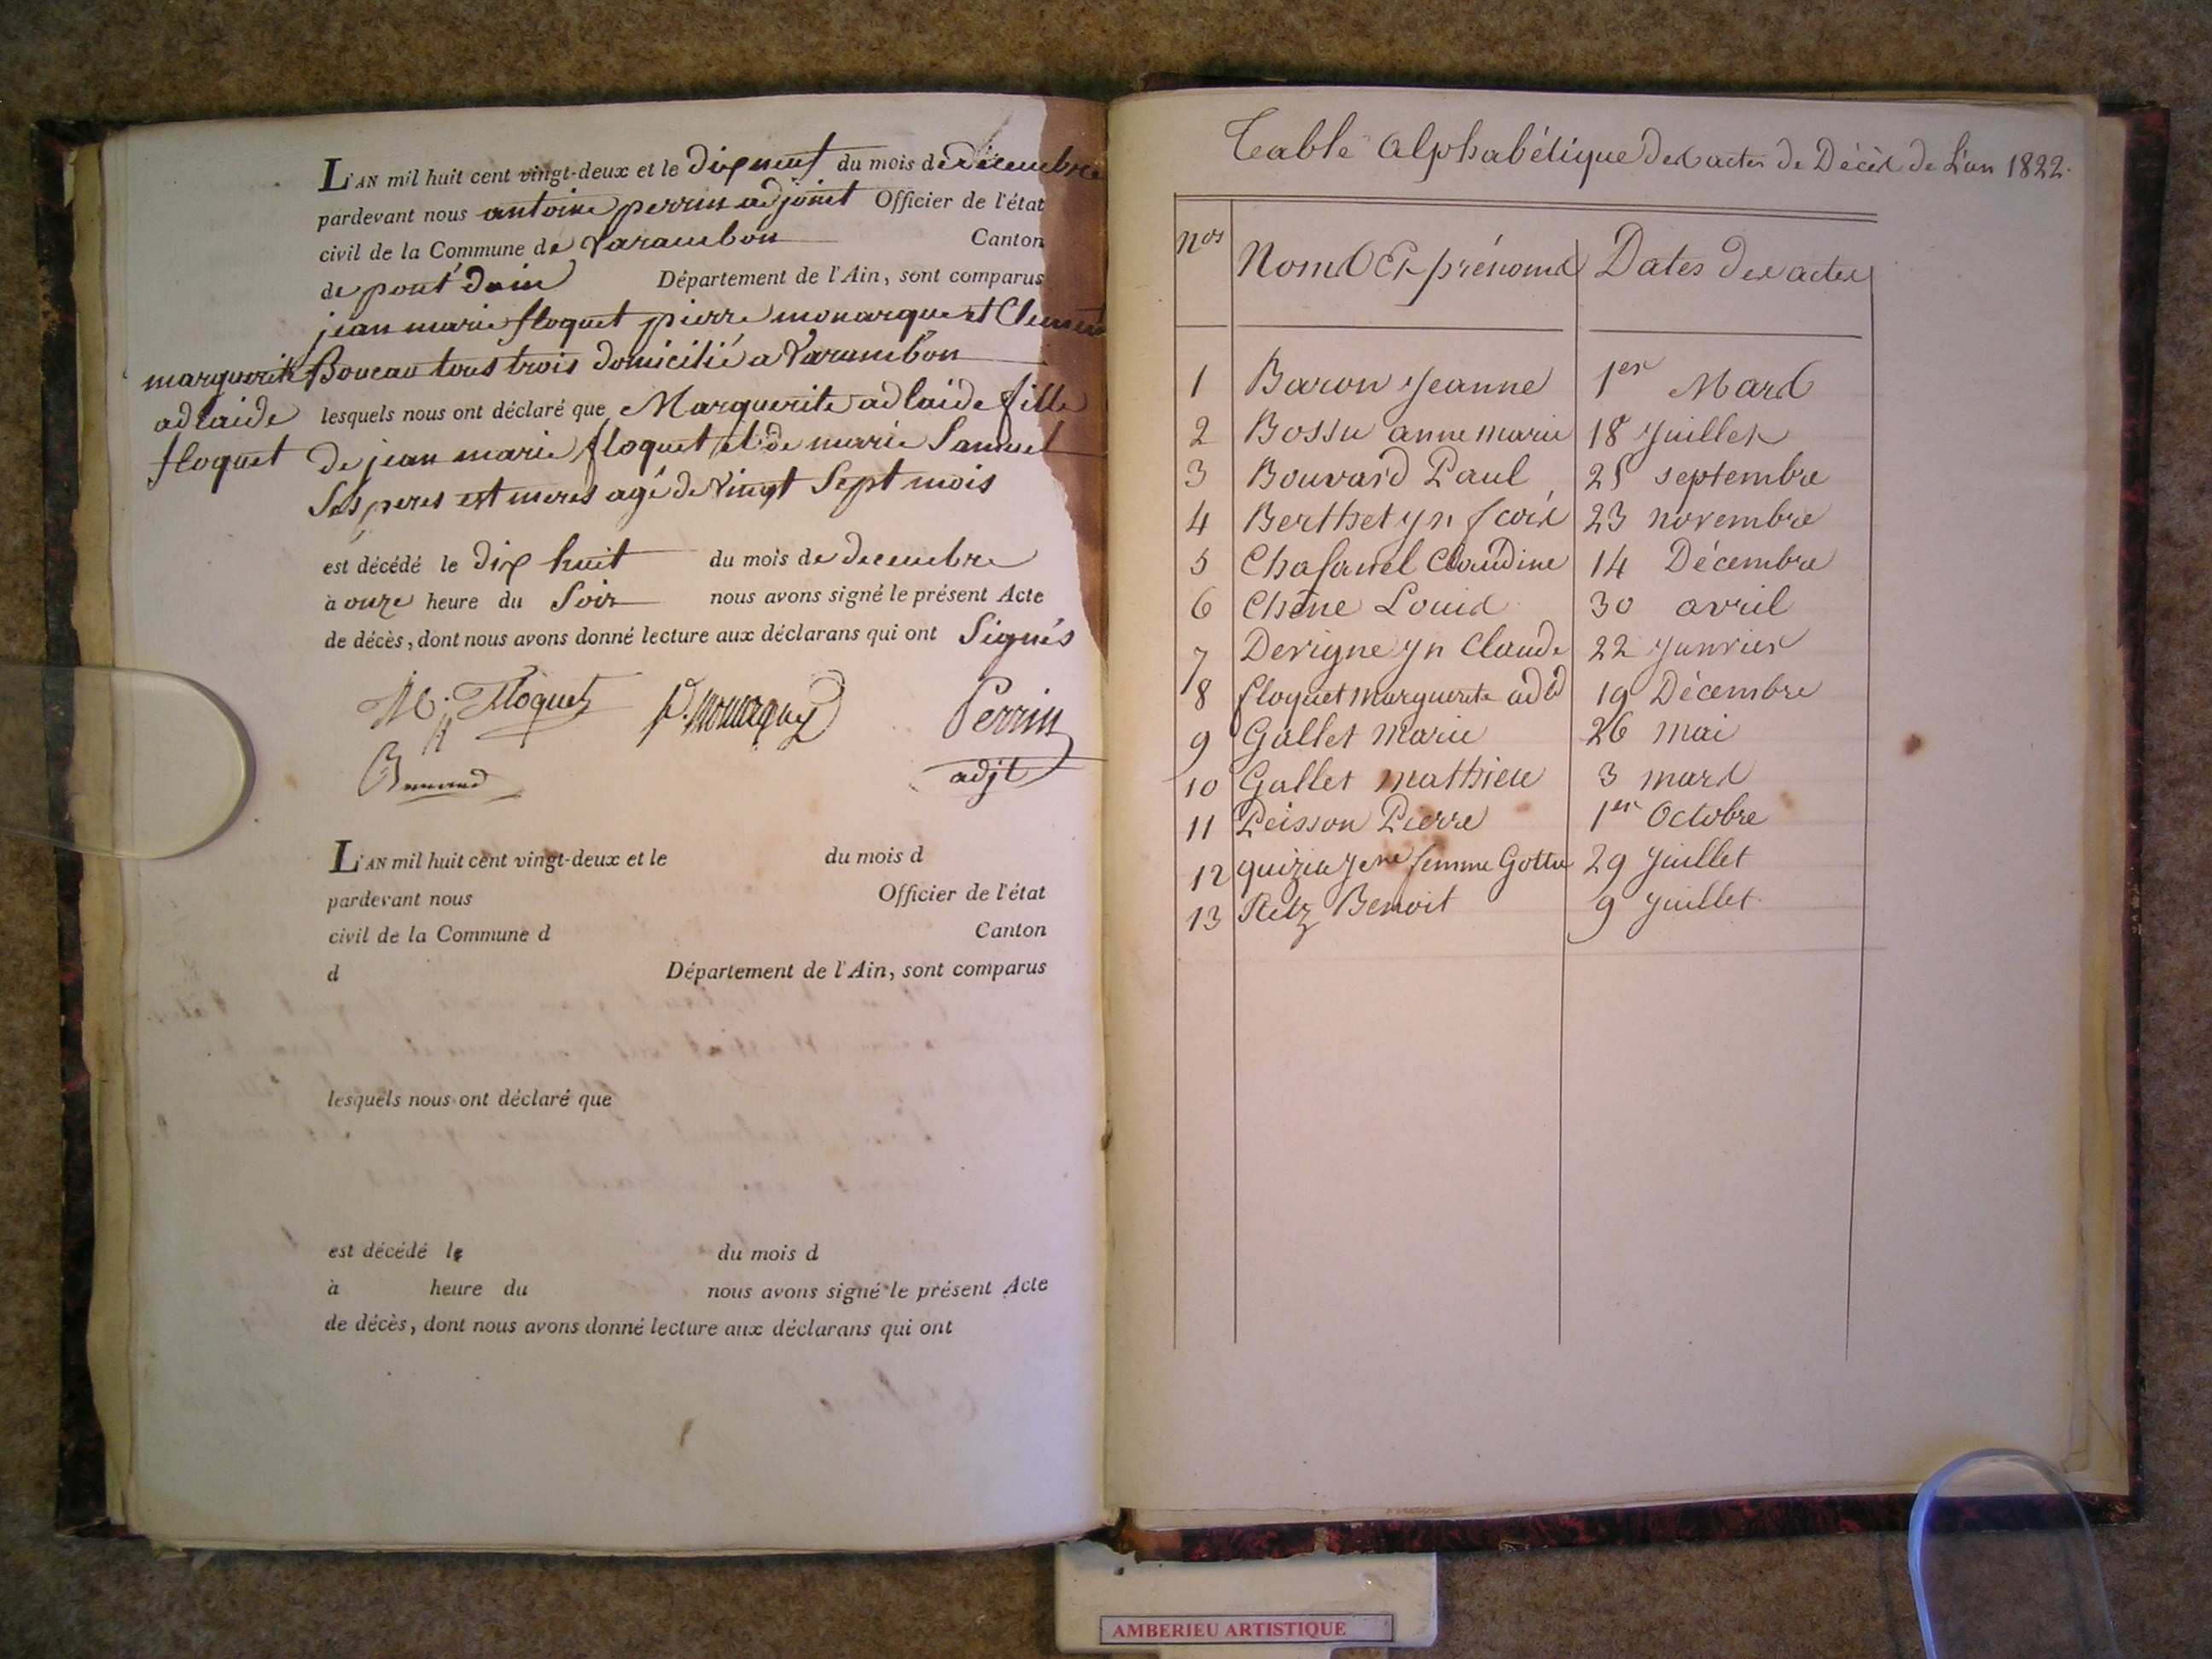 L'AN mil huit cent vingt-deux et le dix neuf du mois de decembre
pardevant nous antoine perrin adjoint Officier de l'état
civil de la Commune de Varambon Canton
de pont d'ain Département de l'Ain, sont comparus
jean marie floquet pierre monarque et
tous trois domicilié a Varambon
marguerite
adlaide
floquet
lesquels nous ont déclaré que Marguerite adlaide fille
de jean marie floquet et de marie
Ses peres est meres agé de Vingt Sept mois
est décédé le dix huit du mois de decembre
à onze heure du Soir nous avons signé le présent Acte
de décès, dont nous avons donné lecture aux déclarans qui ont Signés
Floquet Perrin
adjt
L'AN mil huit cent vingt-deux et le du mois d
pardevant nous Officier de l'état
civil de la Commune d Canton
d Département de l'Ain, sont comparus
lesquels nous ont déclaré que
est décédé le du mois d
à heure du nous avons signé le présent Acte
de décès, dont nous avons donné lecture aux déclarans qui ont
Table Alphabétique des actes de Décès de L'an 1822.
nos Noms Et prénoms Dates des actes
1 Baron Jeanne 1er Mars
2 Bossu anne marie 18 Juillet
3 Bouvard Paul septembre
4 Berthet jn fcois 23 novembre
5 Claudine 14 Décembre
6 Chêne Louis 30 avril
7 Devigne jn Claude 22 Janvier
8 floquet Marguerite adld 19 Décembre
9 Gallet Marie 26 mai
10 Gallet Mathieu 3 mars
11 Peisson Pierre 1er Octobre
12 femme 29 Juillet
13 Retz Benoit 9 Juillet
AMBERIEU ARTISTIQUE